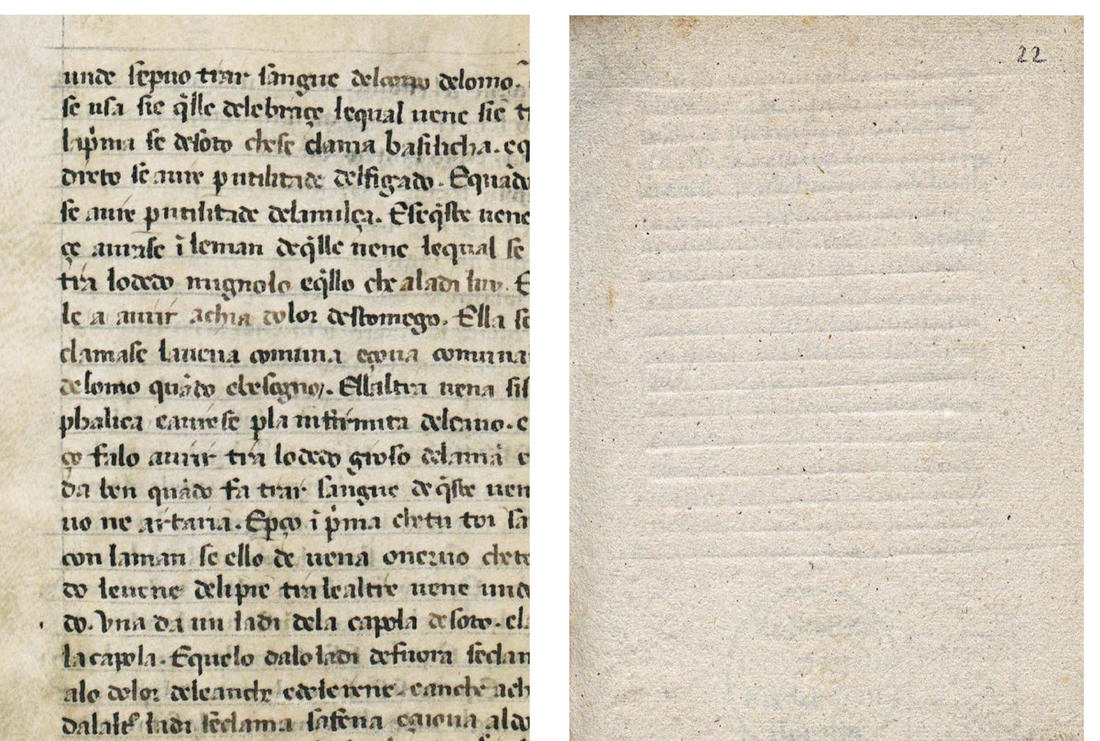 unde sepuo trar sangue delcorpo delomo.
se usa sie q̃lle delebraçe lequal uene sie t
lap̾ma se desoto chese clama basilicha. eq
dreto se aure p utilitade delfigado. Equãdo
se aure p utilitade delamilça. Eseq̃ste uene
çe aurase ĩ leman deq̃lle uene lequal se
tra lodedo mignolo eq̃llo che aladi luy. E
le a aurir achia dolor destomego. Ella se
clamase lauena comuna eçoua comuna
delomo quãdo elbesogno. Ellaltra uena si
phalica eaurese pla infirmita delcauo. e
ço falo aurir tra lodedo groso delamã e
da ben quãdo fa trar sangue deq̃ste uen
uo ne artaria. Epço ĩ p̾ma chetu toi sa
con laman se ello de uena oneruo chete
do leuene delipie tra lealtre uene und
do. Vna da un ladi dela capola desoto. el
la capola. Equelo dalo ladi defuora seclam
alo dolor deleanche edelerene. eanche ach
dalalt̾ ladi seclama safena egioua aldo
22